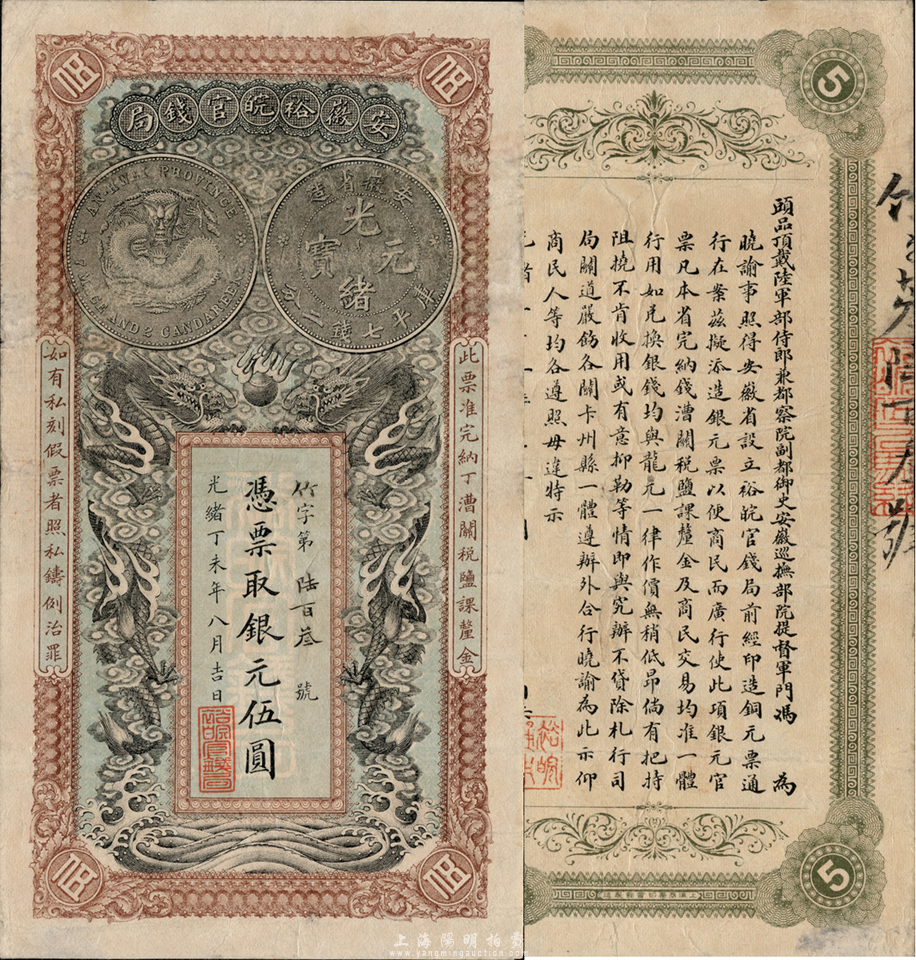 安徽裕皖官錢局
AN-HWAN PROVINCE
安徽省造
光緒元寶
庫平七錢二分
此票准完納丁漕關稅鹽課釐金
如有私刻假票者照私鑄例治罪
竹字第陸百叁號
憑票取銀元伍圓
光緒丁未年八月吉日
伍
伍
伍
伍
5
5
頭品頂戴陸軍部侍郎兼都察院副都御史安徽巡撫部院提督軍門馮 為
曉諭事照得安徽省設立裕皖官錢局前經印造銅元票通
行在案茲擬添造銀元票以便商民而廣行使此項銀元官
票凡本省完納錢漕關稅鹽課釐金及商民交易均准一體
行用如兌換銀錢均與龍元一律作價無稍低昂倘有把持
阻撓不肯收用或有意抑勒等情即與究辦不貸除札行司
局關道嚴飭各關卡州縣一體遵辦外合行曉諭為此示仰
商民人等均各遵照毋違特示
上海陽明拍賣
www.yangmingauction.com